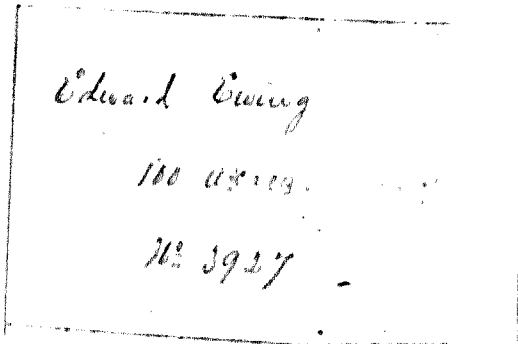 Edward Ewing
100 acres.
No 3927